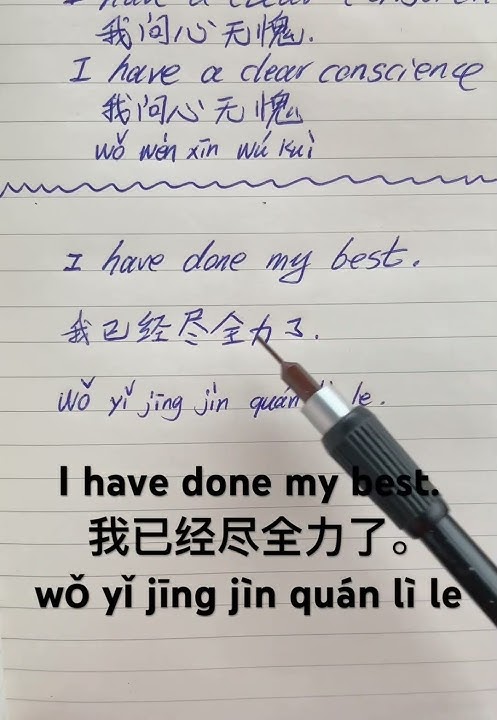 I have a clear
我问心无愧.
I have a clear conscience
我问心无愧
wǒ wén xīn wú kuì
I have done my best.
我已经尽全力了.
wǒ yǐ jīng jìn quán le.
I have done my best.
我已经尽全力了。
wǒ yǐ jīng jìn quán lì le